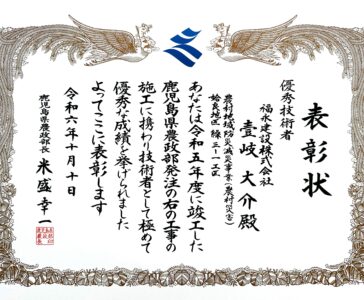 表彰状
優秀技術者
福永建設株式会社
壹岐大介殿
農村地域防災減災事業(農村災害)
姶良地区 線三一一工区
あなたは令和五年度に竣工した
鹿児島県農政部発注の右の工事の
施工に携わり技術者として極めて
優秀な成績を挙げられました
よってここに表彰します
令和六年十月十日
鹿児島県農政部長
米盛幸一